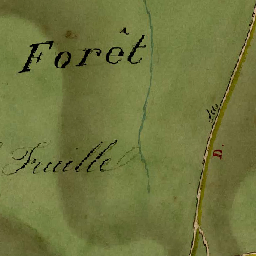 Forêt
Fruille
D.